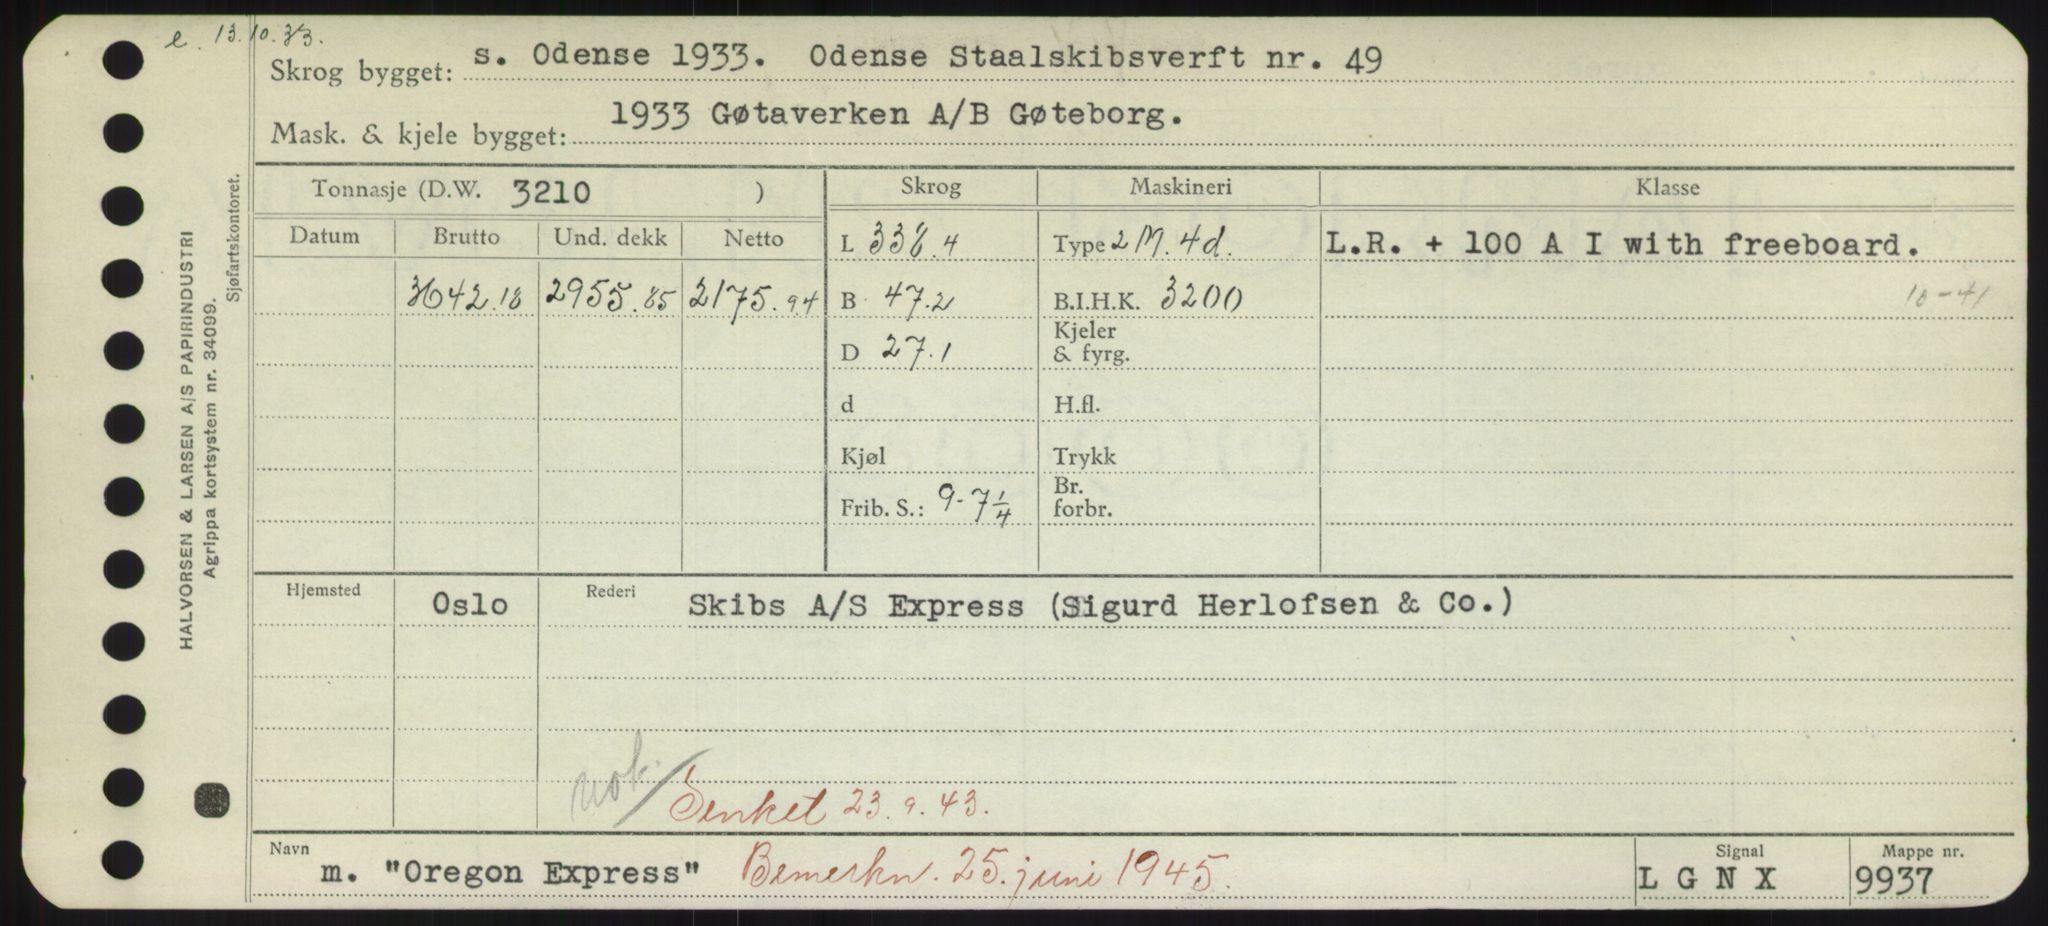 e. 13.10.33.
Skrog bygget: s. Odense 1933. Odense Staalskibsverft nr. 49
Mask. & kjele bygget: 1933 Gøtaverken A/B Gøteborg.
Tonnasje (D.W. 3210 ) Skrog Maskineri Klasse
Datum Brutto Und. dekk Netto L 338.4 Type 2 M. 4d. L.R. + 100 A I with freeboard.
3642.18 2955.85 2175.94 B 47.2 B.I.H.K. 3200 10-41
D 27.1 Kjeler & fyrg.
d H.fl.
Kjøl Trykk
Frib. S.: 9-7 1/4 Br. forbr.
Hjemsted Oslo Rederi Skibs A/S Express (Sigurd Herlofsen & Co.)
nok. Senket 23.9.43.
Navn m. "Oregon Express" Bemerkn. 25. juni 1945. Signal L G N X Mappe nr. 9937
HALVORSEN & LARSEN A/S PAPIRINDUSTRI
Agrippa kortsystem nr. 34099.
Sjøfartskontoret.